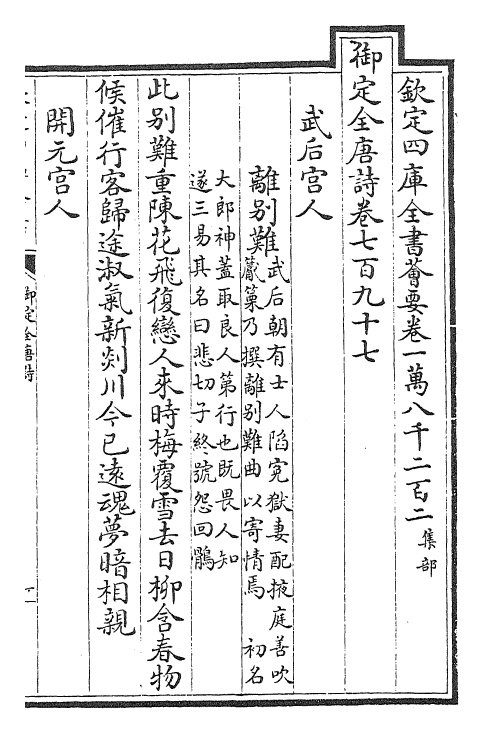 欽定四庫全書薈要卷一萬八千二百二 集部
御定全唐詩卷七百九十七
武后宫人
離别難 武后朝有士人陷寃獄妻配掖庭善吹
觱篥乃撰離别難曲以寄情焉 初名
大郎神葢取良人第行也既畏人知
遂三易其名曰悲切子終號怨回鶻
此别難重陳花飛復戀人來時梅覆雪去日柳含春物
候催行客歸途淑氣新剡川今已遠魂夢暗相親
開元宫人
御定全唐詩